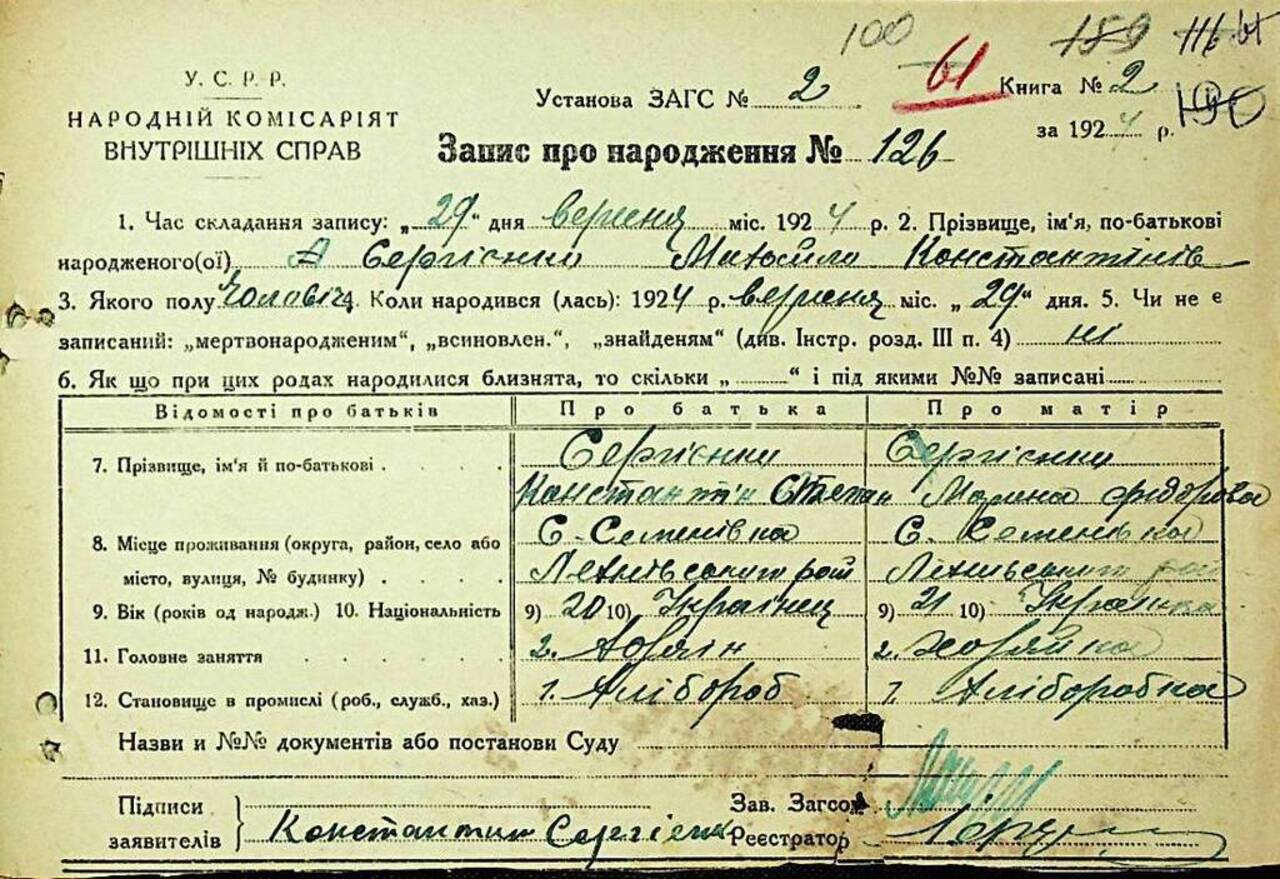 100 61 189 111 61
У. С. Р. Р.
НАРОДНІЙ КОМІСАРІЯТ
ВНУТРІШНІХ СПРАВ
Установа ЗАГС № 2
Книга № 2
за 1924 р. 190
Запис про народження № 126
1. Час складання запису: „29“ дня вересня міс. 1924 р. 2. Прізвище, ім'я, по-батькові
народженого(ої) Сергієнко Михайло Константінів
3. Якого полу Чоловіч 4. Коли народився (лась): 1924 р. вересня міс. „29“ дня. 5. Чи не є
записаний: „мертвонародженим“, „всиновлен.“, „знайденям“ (див. Інстр. розд. III п. 4) ні
6. Як що при цих родах народилися близнята, то скільки „ “ і під якими №№ записані
Відомості про батьків Про батька Про матір
7. Прізвище, ім'я й по-батькові Сергієнко Сергієнко
Константін Степан Марена Фидорова
8. Місце проживання (округа, район, село або С. Семенівка С. Семенівка
місто, вулиця, № будинку)
9. Вік (років од народж.) 10. Національність 9) 20 10) Українец 9) 21 10) Українка
11. Головне заняття 2.
2.
12. Становище в промислі (роб., служб., хаз.) 1. Хлібороб 1. Хліборобка
Назви и №№ документів або постанови Суду
Підписи
заявителів Константин Сергієнко
Зав. Загсом
Реєстратор